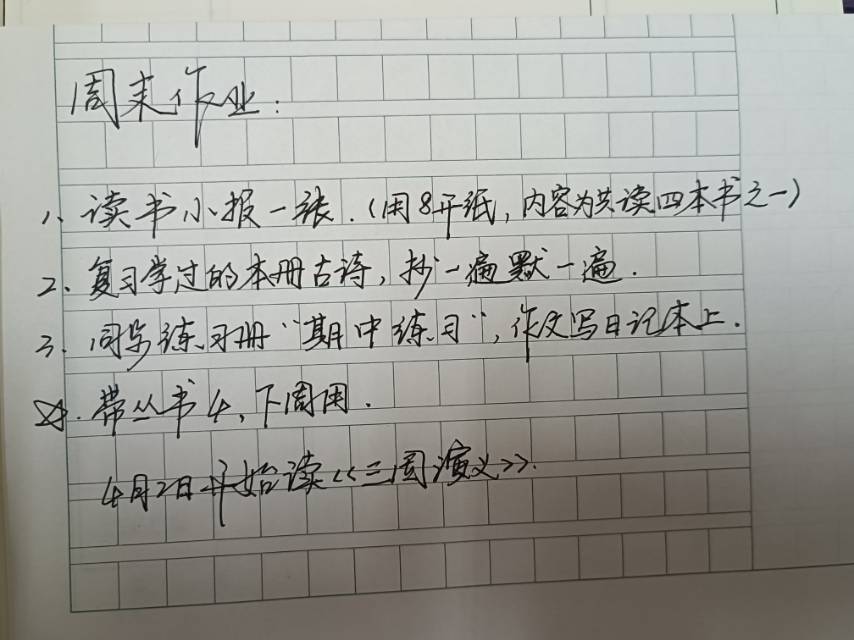 周末作业：
1、读书小报一张.（用8开纸，内容为共读四本书之一）
2、复习学过的本册古诗，抄一遍默一遍.
3、同步练习册“期中练习”，作文写日记本上.
☆.带丛书4，下周用.
4月2日开始读《三国演义》.